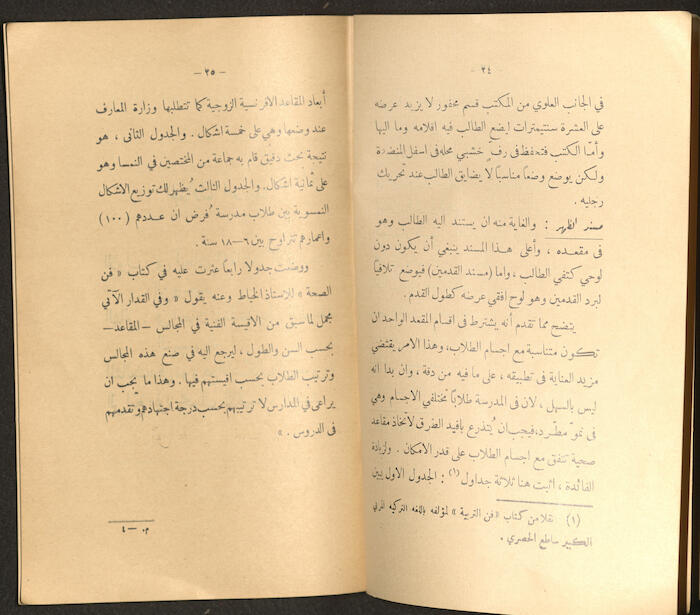 — ٢٤ —
في الجانب العلوي من المكتب قسم محفور لا يزيد عرضه
على العشرة سنتيمترات ليضع الطالب فيه اقلامه وما اليها
وأمّا الكتب فتحفظ في رفّ خشبي محله في اسفل المنضدة
ولكن يوضع وضعاً مناسباً لا يضايق الطالب عند تحريك
رجليه .
مسند الظهر : والغاية منه ان يستند اليه الطالب وهو
في مقعده ، وأعلى هذا المسند ينبغي أن يكون دون
لوحي كتفي الطالب ، واما (مسند القدمين) فيوضع تلافياً
لبرد القدمين وهو لوح افقي عرضه كطول القدم .
يتضح مما تقدم أنه يشترط في اقسام المقعد الواحد ان
تكون متناسبة مع اجسام الطلاب، وهذا الامر يقتضي
مزيد العناية في تطبيقه ، على ما فيه من دقة ، وان بدا انه
ليس بالسهل ، لان في المدرسة طلاباً مختلفي الاجسام وهي
في نموّ مطّرد، فيجب ان يُتذرع بافيد الطرق لاتخاذ مقاعد
صحية تتفق مع اجسام الطلاب على قدر الامكان . ولزيادة
الفائدة ، اثبت هنا ثلاثة جداول (١) : الجدول الاول يبين
(١) نقلا من كتاب « فن التربية » لمؤلفه باللغه التركيه المربي
الكبير ساطع الحصري .
— ٢٥ —
أبعاد المقاعد الافرنسية الزوجية كما تتطلبها وزارة المعارف
عند وضعها وهي على خمسة اشكال . والجدول الثاني ، هو
نتيجة بحث دقيق قام به جماعة من المختصين في النمسا وهو
على ثمانية اشكال. والجدول الثالث يُظهر لك توزيع الاشكال
النمسوية بين طلاب مدرسة نُفرض ان عددهم (١٠٠)
واعمارهم تتراوح بين ٦—١٨ سنة .
ووضعت جدولا رابعاً عثرت عليه في كتاب « فن
الصحة » للاستاذ الخياط وعنه يقول « وفي القدار الآتي
مجمل لما سبق من الاقيسة الفنية في المجالس —المقاعد—
بحسب السن والطول ، ليرجع اليه في صنع هذه المجالس
وترتيب الطلاب بحسب اقيستهم فيها . وهذا ما يجب ان
يراعى في المدارس لا ترتيبهم بحسب درجة اجتهادهم وتقدمهم
في الدروس . »
م. — ٤